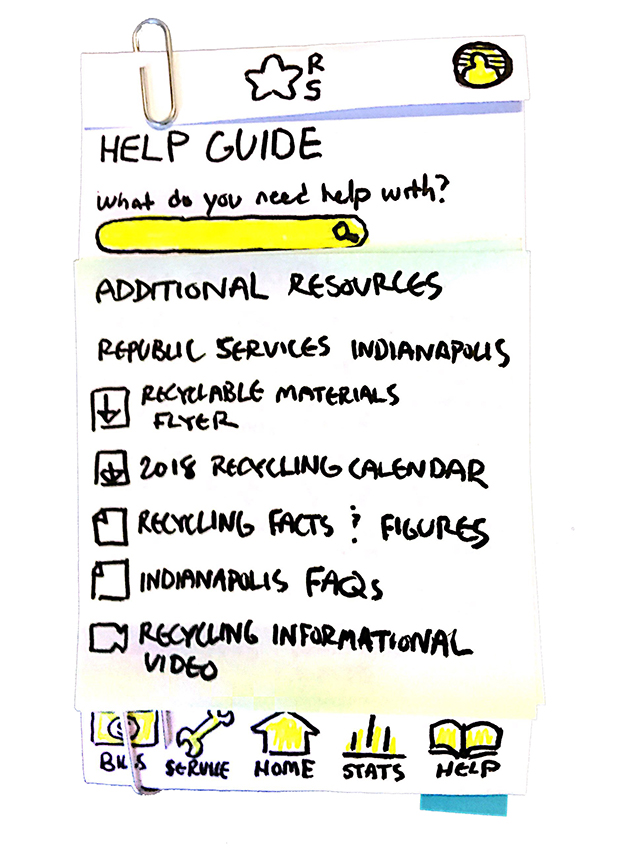 R
S
HELP GUIDE
what do you need help with?
ADDITIONAL RESOURCES
REPUBLIC SERVICES INDIANAPOLIS
RECYCLABLE MATERIALS
FLYER
2018 RECYCLING CALENDAR
RECYCLING FACTS & FIGURES
INDIANAPOLIS FAQs
RECYCLING INFORMATIONAL
VIDEO
BILLS SERVICE HOME STATS HELP